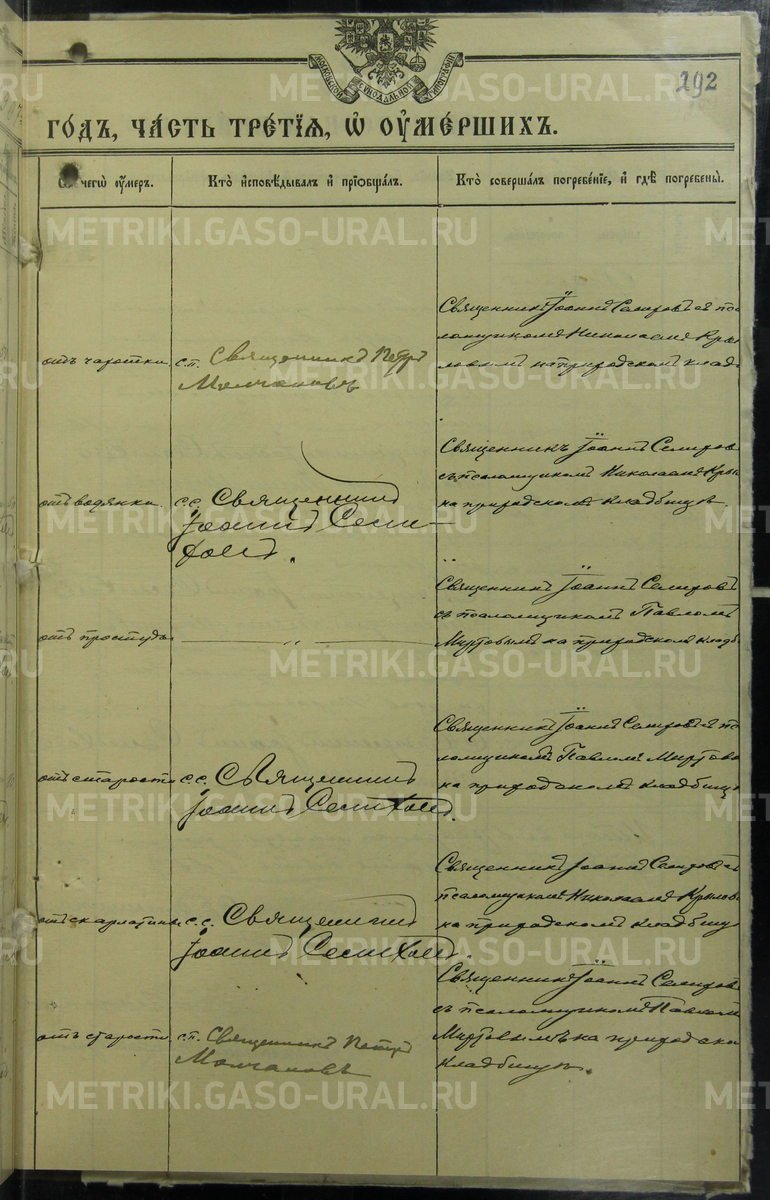 МОСКОВСКОЙ СѴНОДАЛЬНОЙ ТИПОГРАФІИ
METRIKI.GASO-URAL.RU
292
го́дъ, ча́сть тре́тїѧ, ѡ᾽ оу҆ме́ршихъ.
чегѡ̀ оу҆́меръ.
Кто̀ и҆сповѣ́дывалъ и҆ прїѡбща́лъ.
Кто̀ соверша́лъ погребе́нїе, и҆ гдѣ̀ погребены̀.
отъ чахотки
с.п. Священникъ Петръ
Молчановъ
Священникъ Іоаннъ Селировъ съ пса
ломщикомъ Николаемъ Кры
ловымъ на природскомъ клад
отъ водянки.
с.с. Священникъ
Іоаннъ
Священникъ Іоаннъ Селиров
съ псаломщикомъ Николаемъ Кры
на природскомъ кладбищѣ.
отъ простуды
— „ —
Священникъ Іоаннъ Селировъ
съ псаломщикомъ Павломъ
Миртовымъ на природскомъ кладб
отъ старости
с.с. Священникъ
Іоаннъ
Священникъ Іоаннъ Селировъ съ пса
ломщикомъ Павлом Миртово
на природскомъ кладбищѣ
отъ скарлатины
с.с. Священникъ
Іоаннъ
Священникъ Іоаннъ Селировъ съ
псаломщикомъ Николаемъ Крылов
на природскомъ кладбищѣ
отъ старости.
с.п. Священникъ Петръ
Молчановъ
Священникъ Іоаннъ Селиров
съ псаломщикомъ Павлом
Миртовымъ на природско
кладбищѣ.